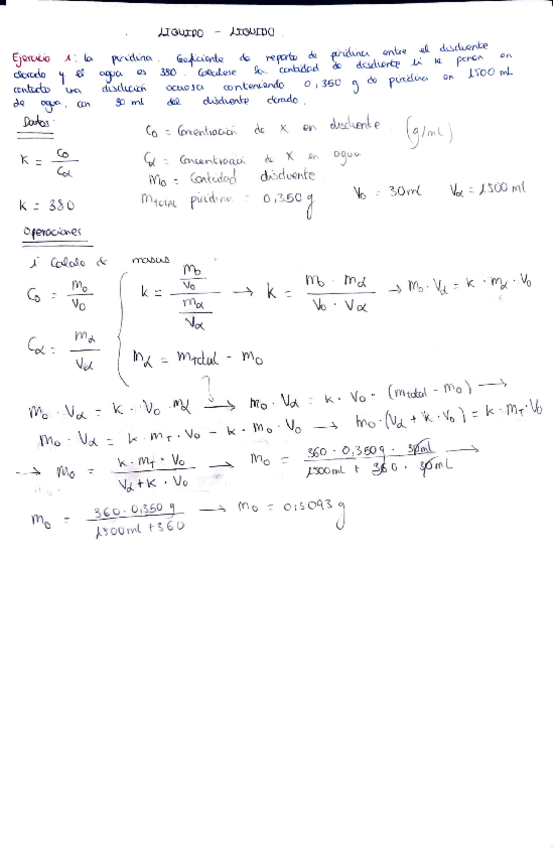 LIQUIDO - LIQUIDO.
Ejercicio 1: la piridina. Coeficiente de reparto de piridina entre el disolvente
clorado y el agua es 380. Calculese la cantidad de disolvente si se ponen en
contacto una disolución acuosa conteniendo 0,350 g de piridina en 1500 mL
de agua, con 30 ml del disolvente clorado.
Datos:
Co = Concentración de X en disolvente (g/mL)
K = Co / Cα
Cα = Concentración de X en agua
Mo = Cantidad disolvente
K = 380
MTOTAL piridina = 0,350 g Vo = 30ml Vα = 1500 ml
Operaciones
1: Calculo de masas
Co = mo / Vo
Cα = mα / Vα
K = (mo / Vo) / (mα / Vα) → K = mo · mα / Vo · Vα → mo · Vα = K · mα · Vo
mα = mTotal - mo
mo · Vα = K · Vo · mα → mo · Vα = K · Vo · (mTotal - mo) →
mo · Vα = K · mT · Vo - K · mo · Vo → mo · (Vα + K · Vo) = K · mT · Vo
→ mo = K · mT · Vo / Vα + K · Vo → mo = 360 · 0,350 g · 30ml / 1500ml + 360 · 30mL →
mo = 360 · 0,350 g / 1500ml + 360 → mo = 0,3093 g